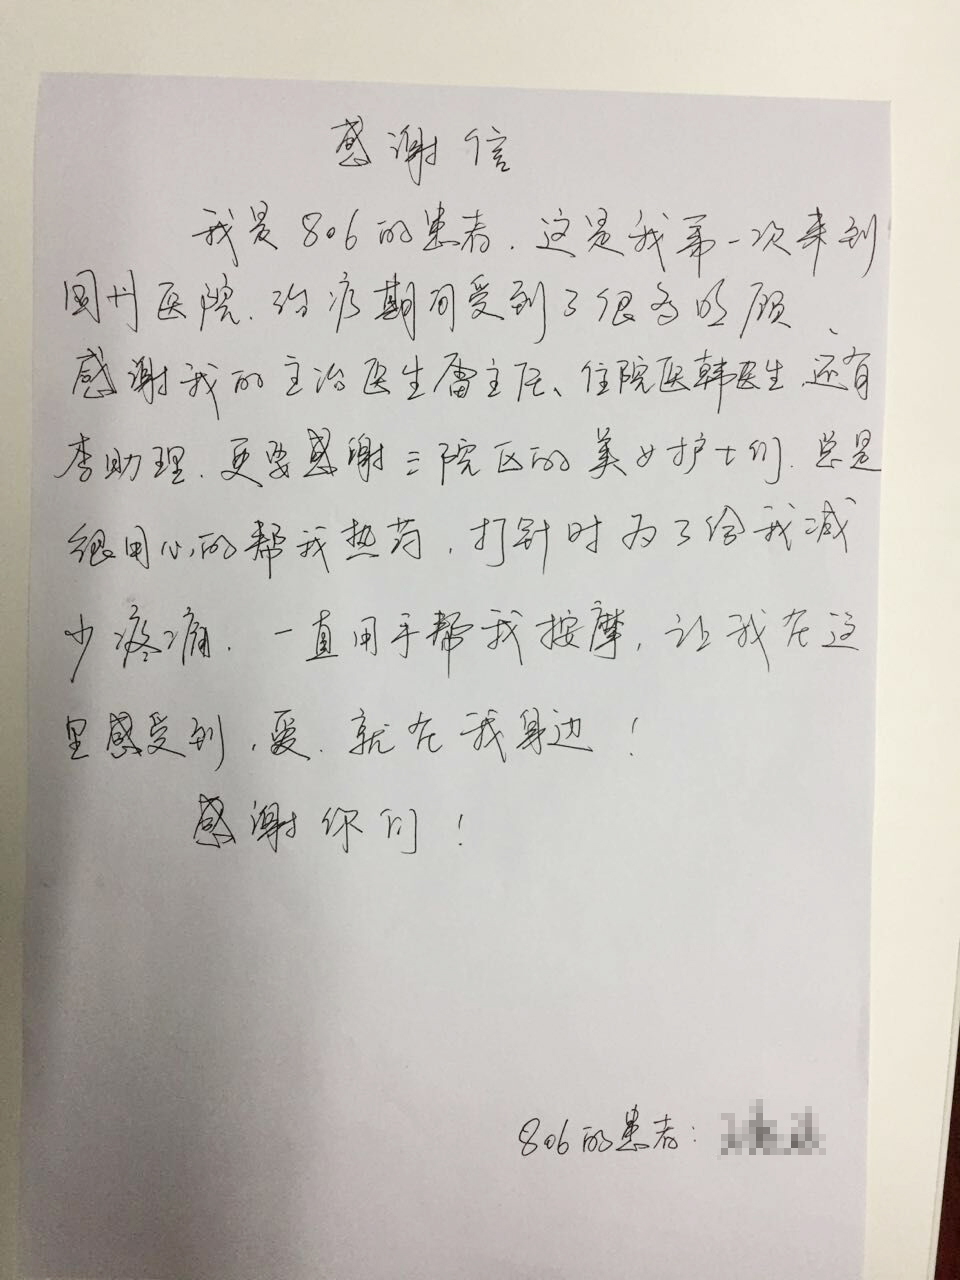 感谢信
我是806的患者，这是我第一次来到
国丹医院，治疗期间受到了很多照顾、
感谢我的主治医生雷主任、住院医韩医生、还有
李助理，更要感谢三院区的美女护士们，总是
很用心的帮我热药，打针时为了给我减
少疼痛，一直用手帮我按摩，让我在这
里感受到，爱，就在我身边！
感谢你们！
806的患者：